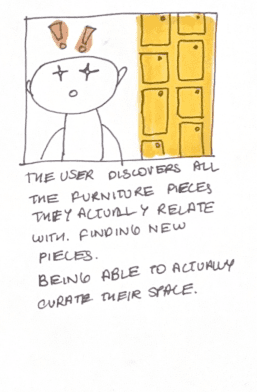 !!
THE USER DISCOVERS ALL
THE FURNITURE PIECES
THEY ACTUALLY RELATE
WITH. FINDING NEW
PIECES.
BEING ABLE TO ACTUALLY
CURATE THEIR SPACE.